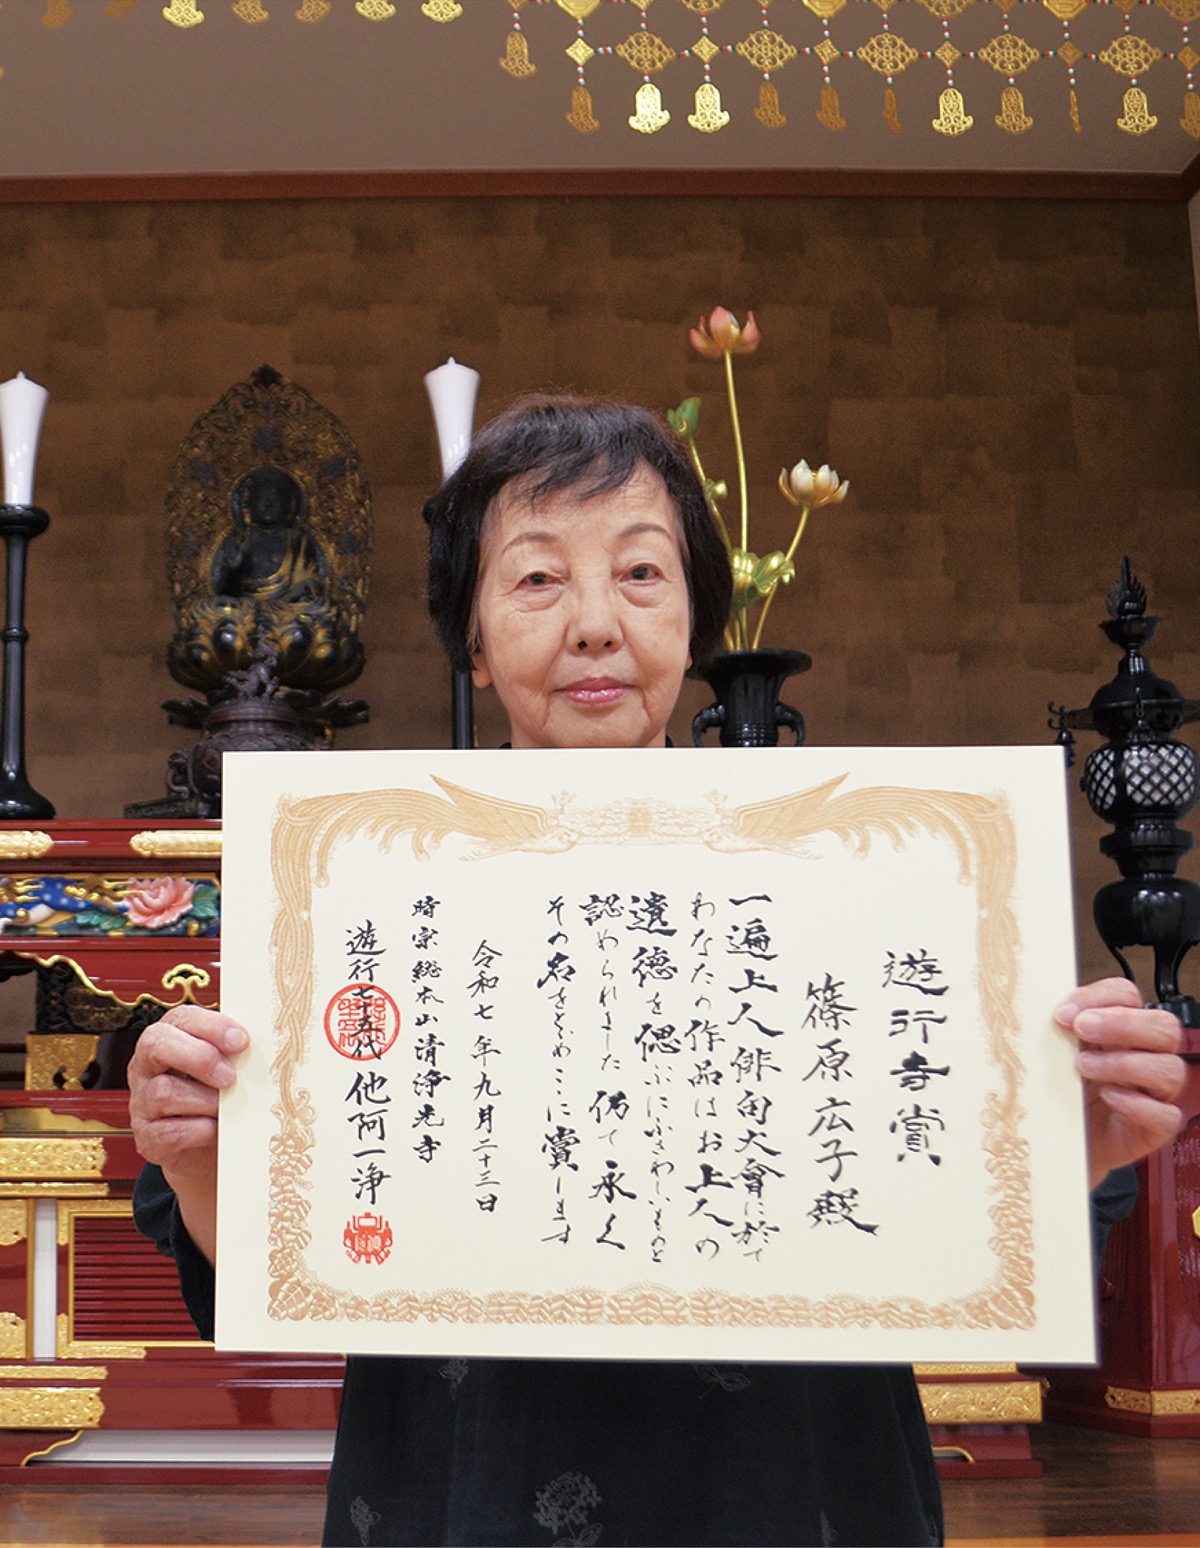 遊行寺賞
篠原広子殿
一遍上人俳句大會に於て
わなたの作品はお上人の
遺徳を偲ぶにふさわしいものと
認められました 仍て永く
その名をとどめここに賞します
令和七年九月二十三日
時宗総本山清浄光寺
遊行七十五代 他阿一浄